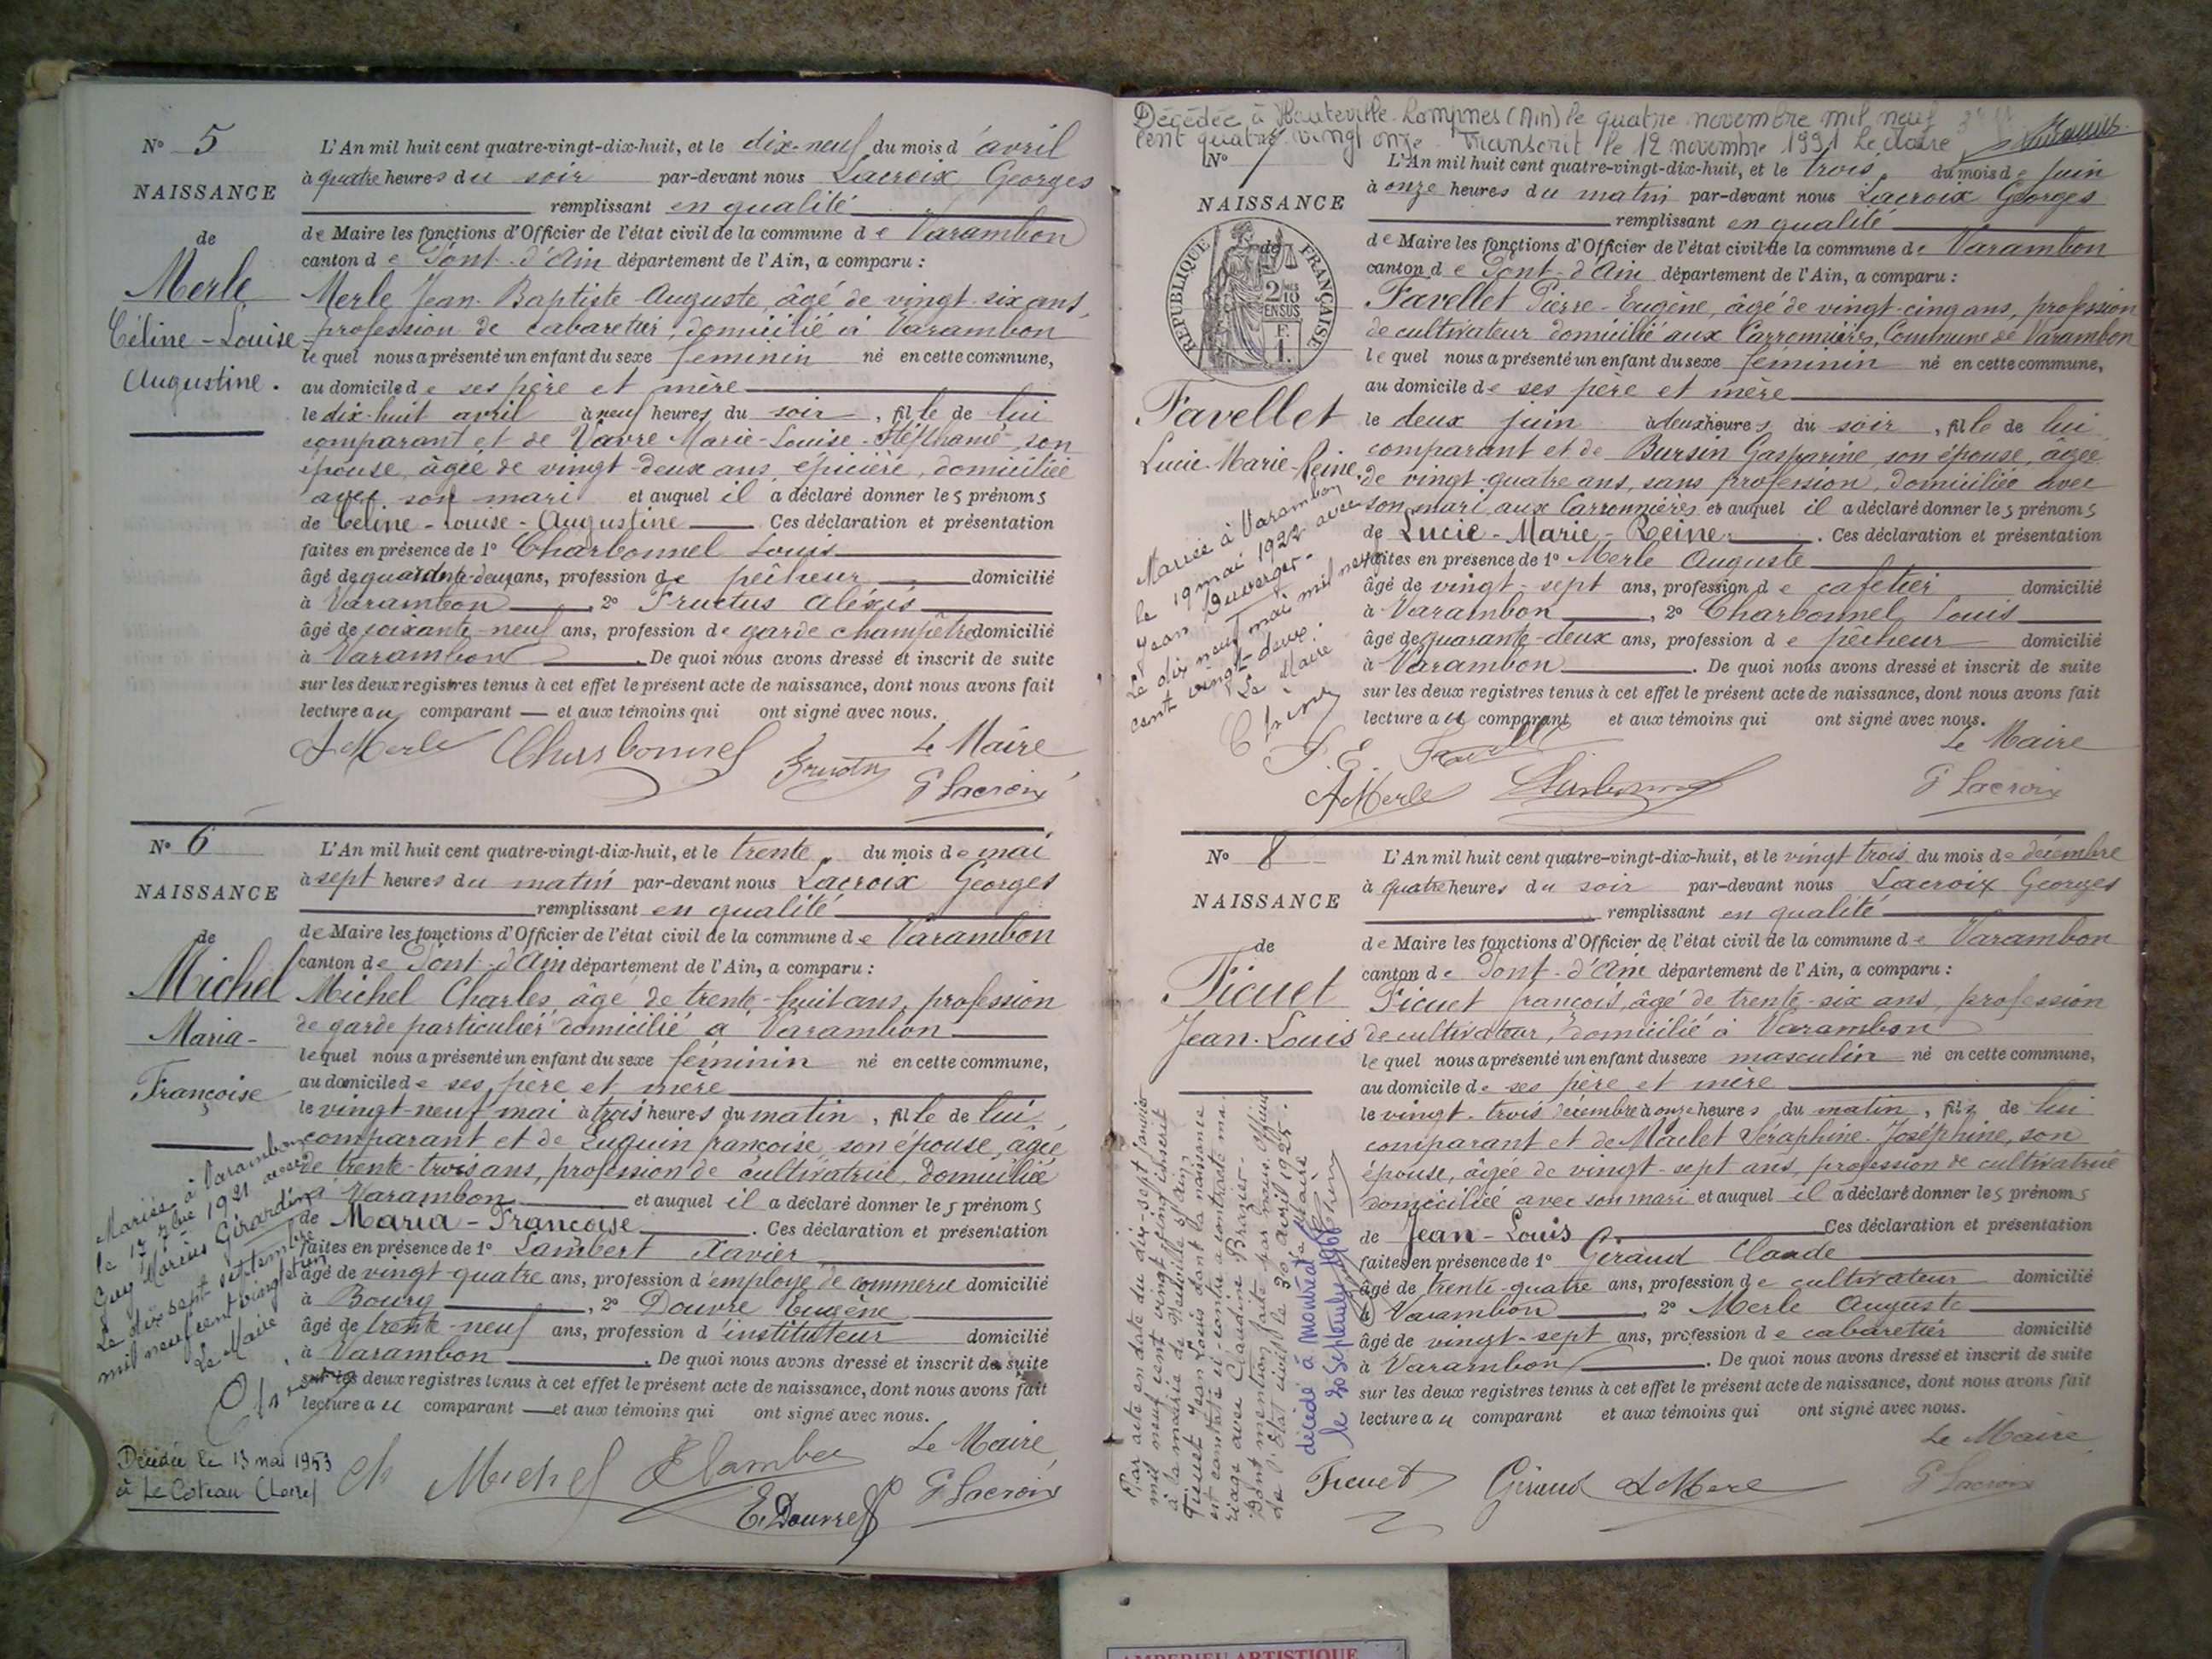 N° 5
NAISSANCE
de
Merle
Céline-Louise
Augustine.
L'An mil huit cent quatre-vingt-dix-huit, et le dix-neuf du mois d'avril
à quatre heures du soir par-devant nous Lacroix Georges
remplissant en qualité
de Maire les fonctions d'Officier de l'état civil de la commune de Varambon
canton de Pont-d'Ain département de l'Ain, a comparu :
Merle Jean-Baptiste Auguste, âgé de vingt-six ans,
profession de cabaretier, domicilié à Varambon
lequel nous a présenté un enfant du sexe féminin né en cette commune,
au domicile de ses père et mère
le dix-huit avril à neuf heures du soir, fille de lui
comparant et de Vavre Marie-Louise-Stéphanie, son
épouse, âgée de vingt-deux ans, épicière, domiciliée
avec son mari et auquel il a déclaré donner les prénoms
de Céline-Louise-Augustine Ces déclaration et présentation
faites en présence de 1° Charbonnel Louis
âgé de quarante-deux ans, profession de pêcheur domicilié
à Varambon, 2° Fructus Alexis
âgé de soixante-neuf ans, profession de garde champêtre domicilié
à Varambon. De quoi nous avons dressé et inscrit de suite
sur les deux registres tenus à cet effet le présent acte de naissance, dont nous avons fait
lecture au comparant et aux témoins qui ont signé avec nous.
A Merle Charbonnel Le Maire
G Lacroix
N° 6
NAISSANCE
de
Michel
Maria-
Françoise
L'An mil huit cent quatre-vingt-dix-huit, et le trente du mois de mai
à sept heures du matin par-devant nous Lacroix Georges
remplissant en qualité
de Maire les fonctions d'Officier de l'état civil de la commune de Varambon
canton de Pont-d'Ain département de l'Ain, a comparu :
Michel Charles, âgé de trente-huit ans, profession
de garde particulier domicilié à Varambon
lequel nous a présenté un enfant du sexe féminin né en cette commune,
au domicile de ses père et mère
le vingt-neuf mai à trois heures du matin, fille de lui
comparant et de Luguin françoise, son épouse, âgée
de trente-trois ans, profession de cultivatrice, domiciliée
à Varambon et auquel il a déclaré donner les prénoms
de Maria-Françoise. Ces déclaration et présentation
faites en présence de 1° Lambert Xavier
âgé de vingt-quatre ans, profession d'employé de commerce domicilié
à Bourg, 2° Douvre Eugène
âgé de trente-neuf ans, profession d'instituteur domicilié
à Varambon. De quoi nous avons dressé et inscrit de suite
sur les deux registres tenus à cet effet le présent acte de naissance, dont nous avons fait
lecture au comparant et aux témoins qui ont signé avec nous.
Mariée à Varambon
le 17 7bre 1921 avec
Guy Marius Girardin
Le dix sept septembre
mil neuf cent vingt et un
Le Maire
Décédée le 13 mai 1953
à Le Coteau (Loire)
Ch Michel Lambert Le Maire
E. Douvre G Lacroix
Décédée à Hauteville-Lompnes (Ain) le quatre novembre mil neuf
cent quatre vingt onze. Transcrit le 12 novembre 1991 Le Maire
N° 7
NAISSANCE
de
RÉPUBLIQUE FRANÇAISE
Favellet
Lucie-Marie-Reine.
L'An mil huit cent quatre-vingt-dix-huit, et le trois du mois de juin
à onze heures du matin par-devant nous Lacroix Georges
remplissant en qualité
de Maire les fonctions d'Officier de l'état civil de la commune de Varambon
canton de Pont-d'Ain département de l'Ain, a comparu :
Favellet Pierre-Eugène, âgé de vingt-cinq ans, profession
de cultivateur domicilié aux Carronnières, Commune de Varambon
lequel nous a présenté un enfant du sexe féminin né en cette commune,
au domicile de ses père et mère
le deux juin à deux heures du soir, fille de lui
comparant et de Bursin Gasparine, son épouse, âgée
de vingt-quatre ans, sans profession, domiciliée avec
son mari aux Carronnières et auquel il a déclaré donner les prénoms
de Lucie-Marie-Reine. Ces déclaration et présentation
faites en présence de 1° Merle Auguste
âgé de vingt-sept ans, profession de cafetier domicilié
à Varambon, 2° Charbonnel Louis
âgé de quarante-deux ans, profession de pêcheur domicilié
à Varambon. De quoi nous avons dressé et inscrit de suite
sur les deux registres tenus à cet effet le présent acte de naissance, dont nous avons fait
lecture au comparant et aux témoins qui ont signé avec nous.
Mariée à Varambon
le 19 mai 1922 avec
Jean Duverger.
Le dix neuf mai mil neuf
cent vingt-deux.
Le Maire
P. E. Favellet Le Maire
A Merle Charbonnel G Lacroix
N° 8
NAISSANCE
de
Ficuet
Jean-Louis
L'An mil huit cent quatre-vingt-dix-huit, et le vingt trois du mois de décembre
à quatre heures du soir par-devant nous Lacroix Georges
remplissant en qualité
de Maire les fonctions d'Officier de l'état civil de la commune de Varambon
canton de Pont-d'Ain département de l'Ain, a comparu :
Ficuet françois, âgé de trente-six ans, profession
de cultivateur, domicilié à Varambon
lequel nous a présenté un enfant du sexe masculin né en cette commune,
au domicile de ses père et mère
le vingt-trois décembre à onze heures du matin, fils de lui
comparant et de Maclet Séraphine-Joséphine, son
épouse, âgée de vingt-sept ans, profession de cultivatrice
domiciliée avec son mari et auquel il a déclaré donner les prénoms
de Jean-Louis Ces déclaration et présentation
faites en présence de 1° Géraud Claude
âgé de trente-quatre ans, profession de cultivateur domicilié
à Varambon, 2° Merle Auguste
âgé de vingt-sept ans, profession de cabaretier domicilié
à Varambon. De quoi nous avons dressé et inscrit de suite
sur les deux registres tenus à cet effet le présent acte de naissance, dont nous avons fait
lecture au comparant et aux témoins qui ont signé avec nous.
Par acte en date du dix-sept janvier
mil neuf cent vingt cinq inscrit
à la mairie de Neuville s/ Ain,
Ficuet Jean Louis dont la naissance
est constatée ci-contre a contracté ma-
riage avec Claudine Branier.
Dont mention faite par nous, Officier
de l'Etat civil le 30 avril 1925.
décédé à montréal
le 20 septembre 1966
Ficuet Géraud A Merle Le Maire
G Lacroix
AMBERIEU ARTISTIQUE